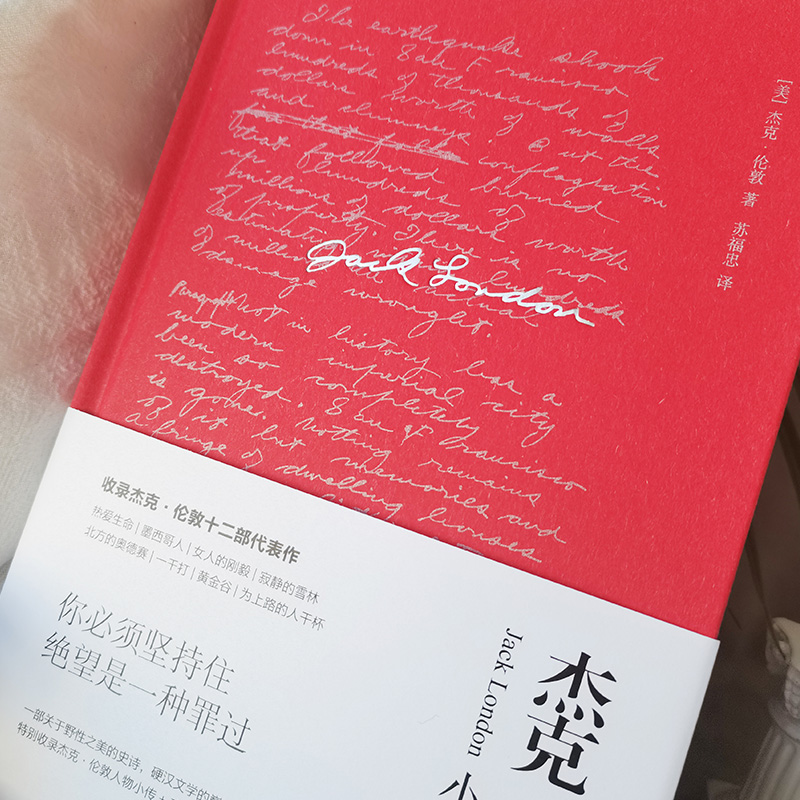 The earthquake shook
down in San Francisco
hundreds of thousands of
dollars worth of walls
and chimneys. But the
conflagration
that followed burned
up hundreds of
millions of dollars worth
of property. There is no
estimating within hundreds
of millions the actual
damage wrought.
Jack London
Paragraph Not in history has a
modern imperial city
been so completely
destroyed. San Francisco
is gone. Nothing remains
of it but memories and
a fringe of dwelling houses
[美] 杰克·伦敦 著 苏福忠 译
收录杰克·伦敦十二部代表作
热爱生命|墨西哥人|女人的刚毅|寂静的雪林
北方的奥德赛|一千打|黄金谷|为上路的人干杯
你必须坚持住
绝望是一种罪过
一部关于野性之美的史诗,硬汉文学的
特别收录杰克·伦敦人物小传
Jack London
杰克
小